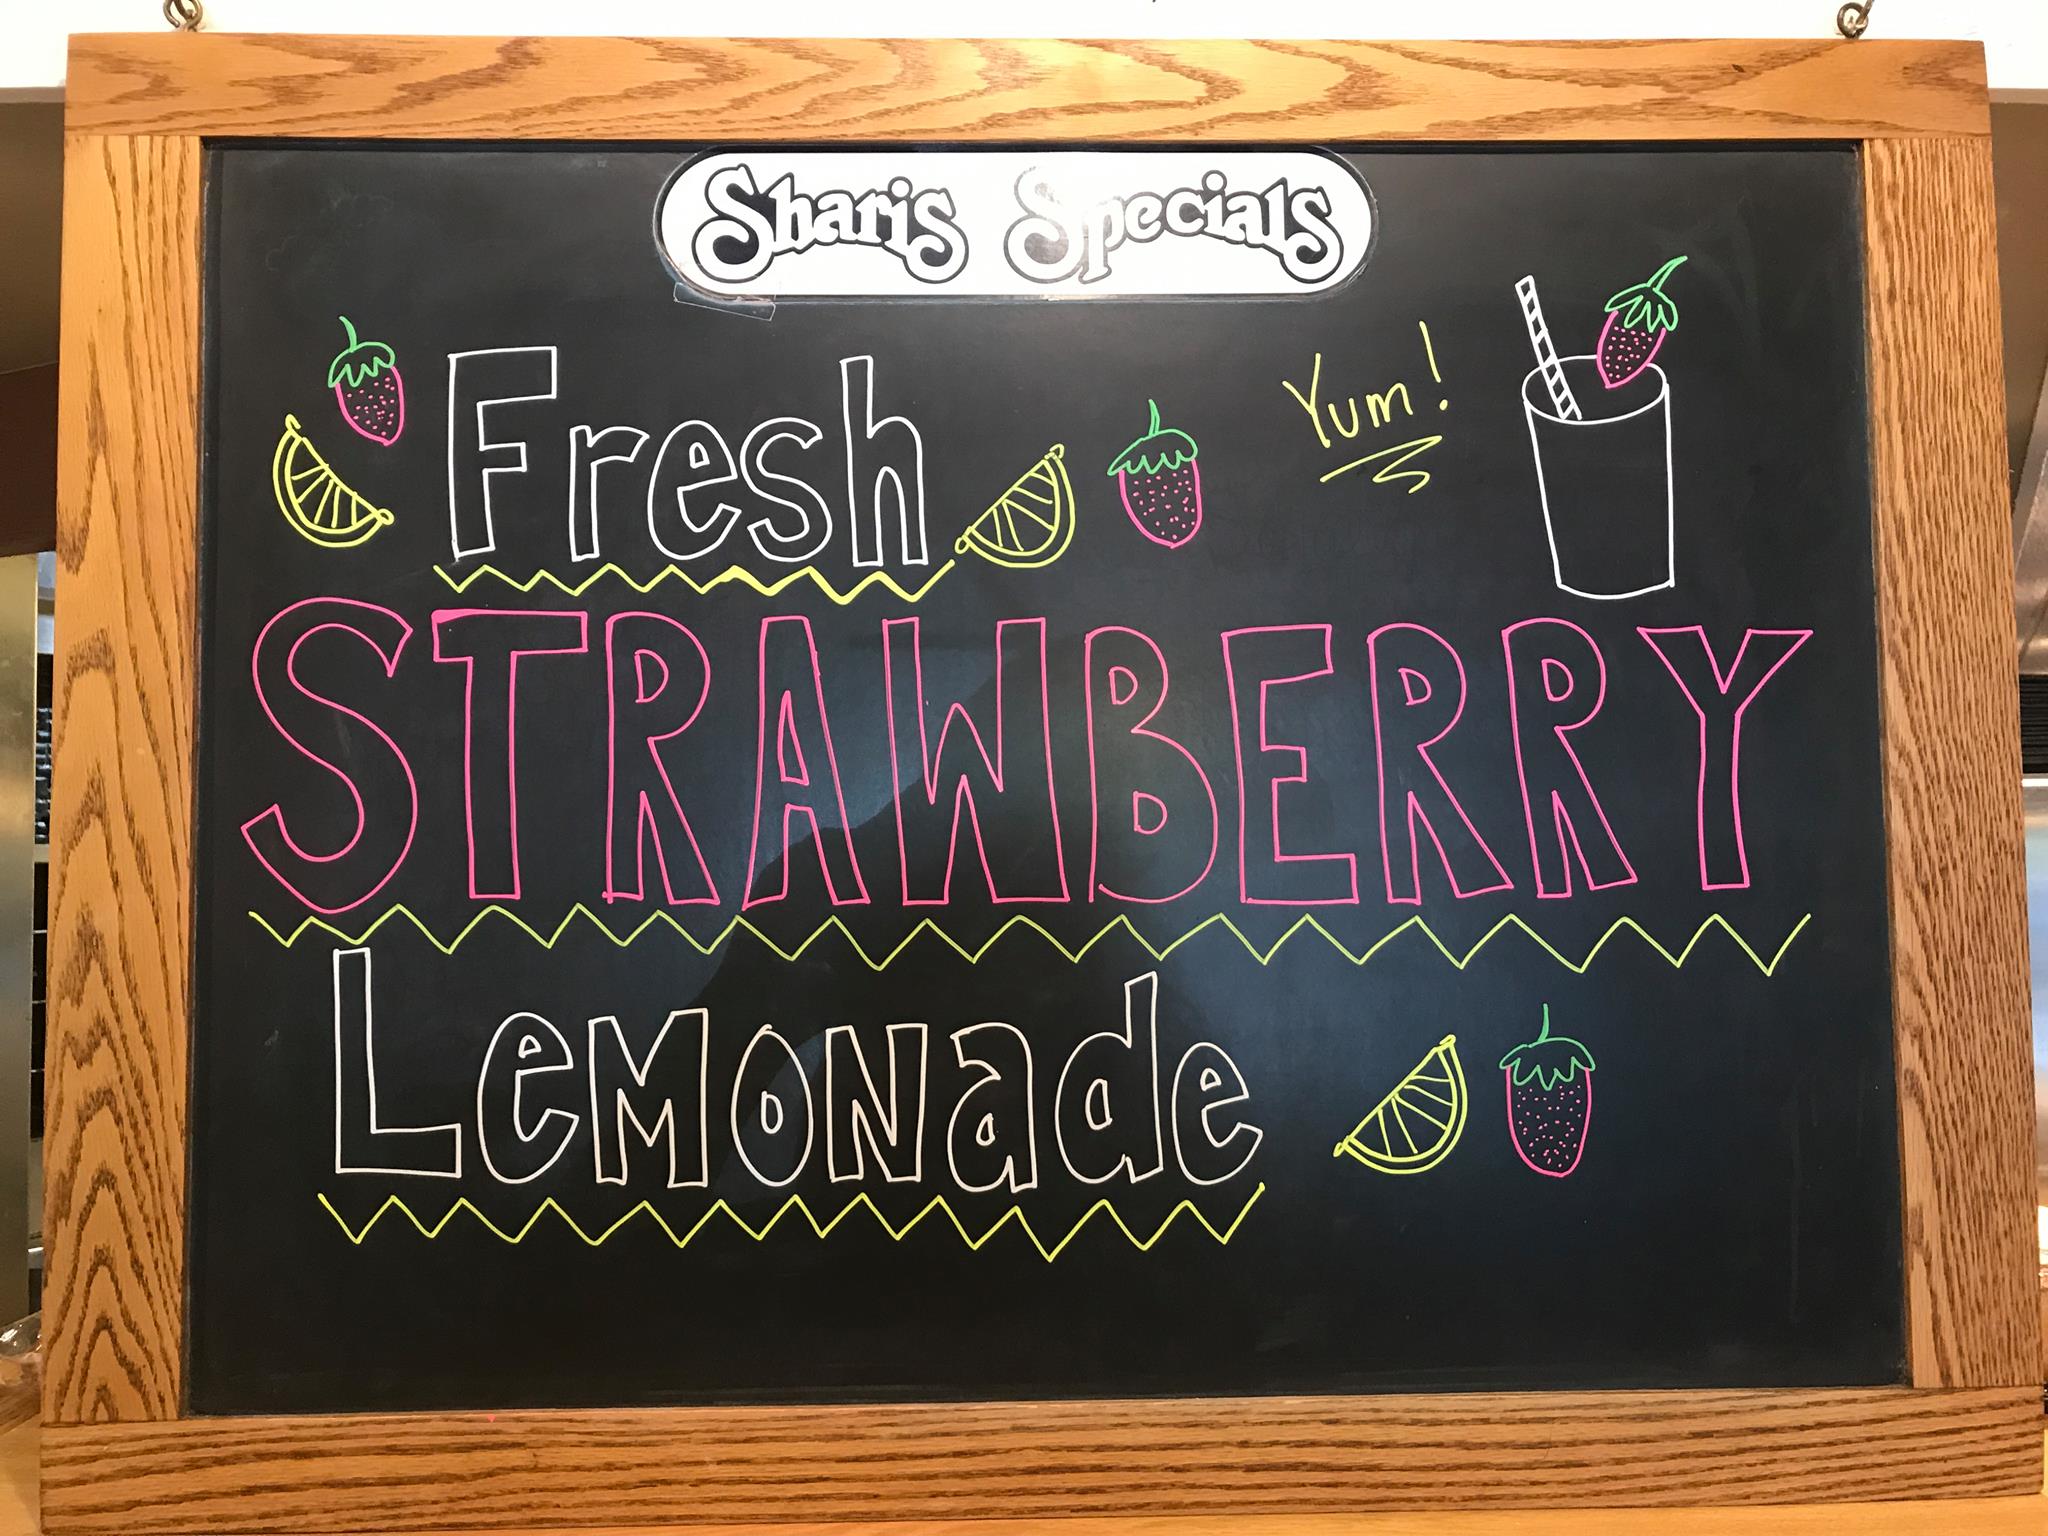 Sharis Specials
Fresh
Yum!
STRAWBERRY
LeMONade